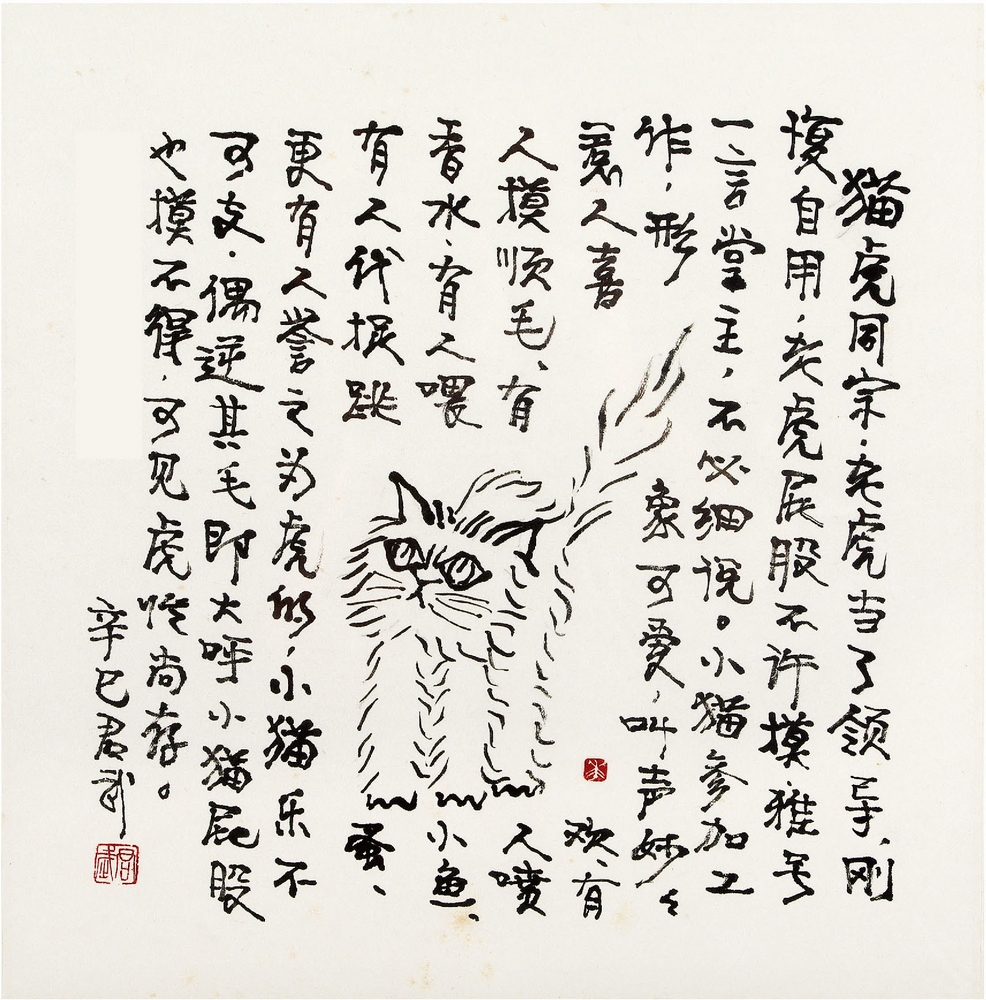 猫虎同宗，老虎当了领导，刚
愎自用，老虎屁股不许摸，雅号
一言堂主，不必细说。小猫参加工
作，形象可爱，叫声妙々
惹人喜欢、有
人摸顺毛、有人喷
香水、有人喂小鱼、
有人代捉跳蚤、
更有人誉之为虎的，小猫乐不
可支。偶逆其毛即大呼小猫屁股
也摸不得，可见虎性尚存。
辛巳君武
君武